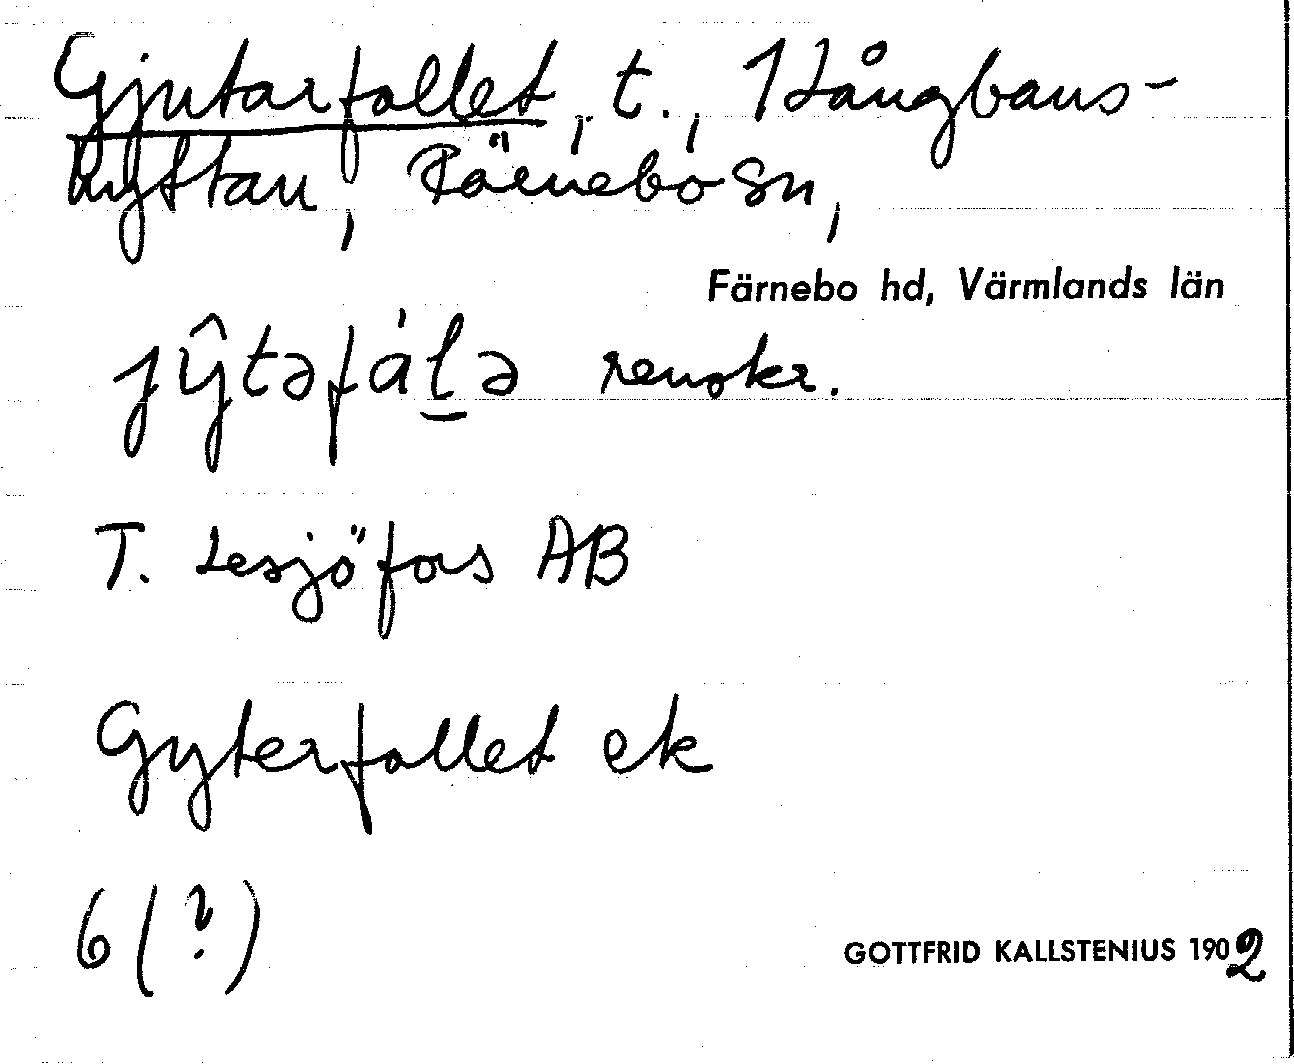 Gjutarfallet, t., Långbans-
hyttan, Färnebo sn,
Färnebo hd, Värmlands län
jŷtəfáḻə renskr.
T. Lesjöfors AB
Gyterfallet ek
6 (?)
GOTTFRID KALLSTENIUS 1902